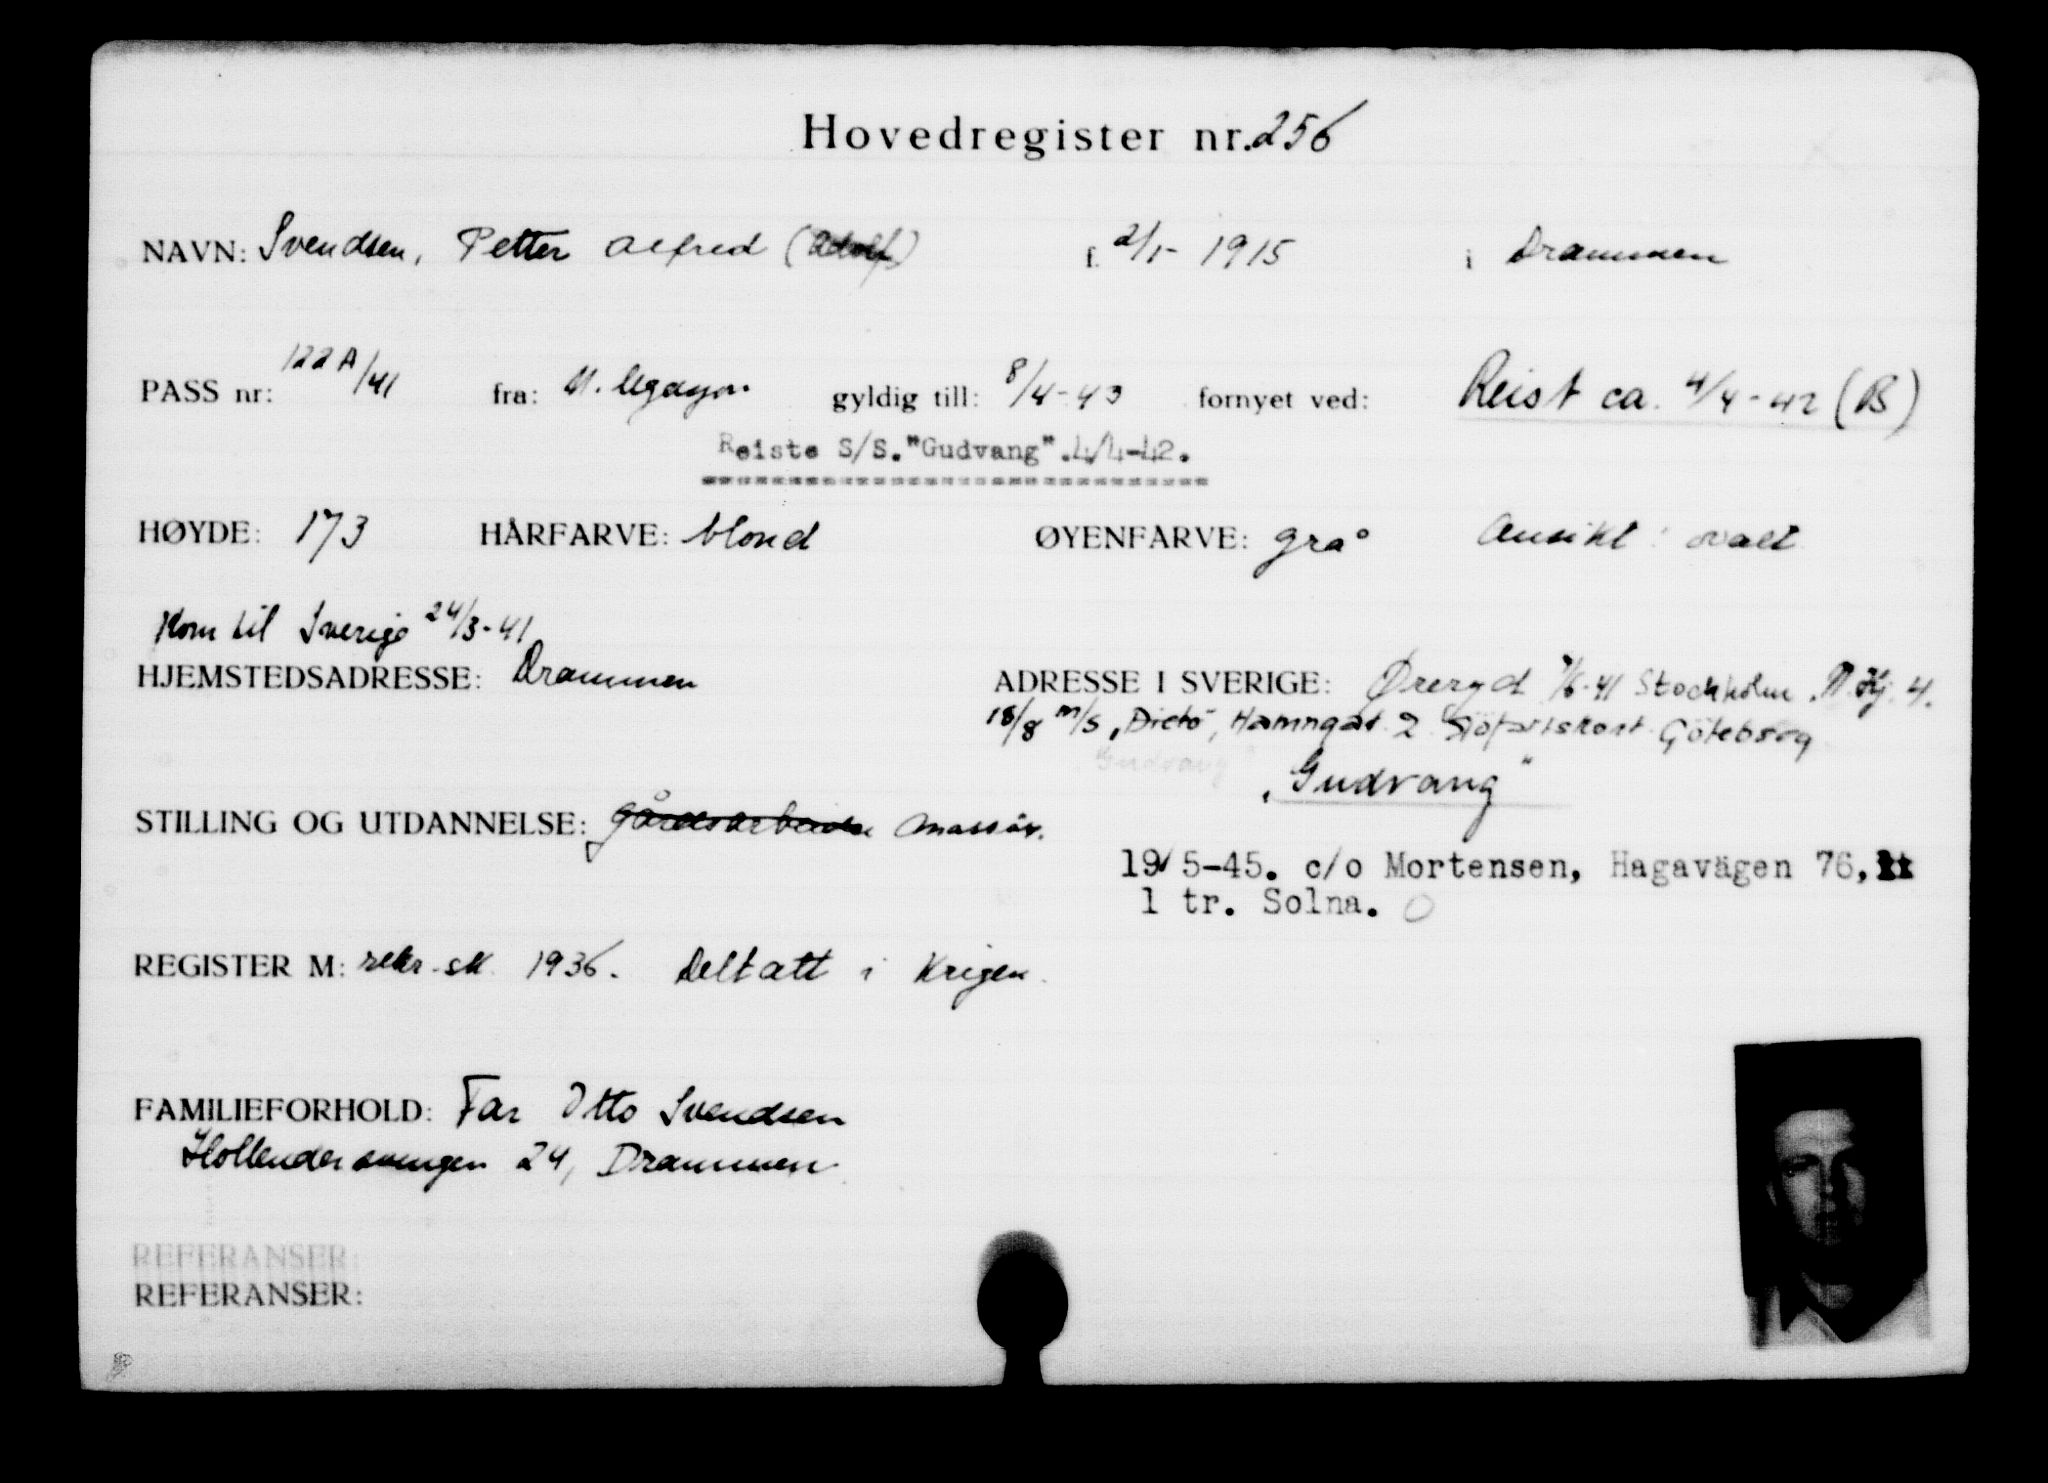 Hovedregister nr. 256
NAVN: Svendsen, Petter Alfred (Adolf) f. 2/1- 1915 i Drammen
PASS nr: 122A/41 fra: N. legasjon gyldig till: 8/4-43 fornyet ved: Reist ca. 4/4-42 (B)
Reiste S/S."Gudvang".4/4-42.
HØYDE: 173 HÅRFARVE: blond ØYENFARVE: grå Ansikt: ovalt
Kom til Sverige 24/3-41
HJEMSTEDSADRESSE: Drammen ADRESSE I SVERIGE: Øreryd 7/6-41 Stockholm.
18/8 m/s "Dicto", Hamngat. 2 Sjöfartskont. Göteborg
"Gudvang"
"Gudvang"
STILLING OG UTDANNELSE: gårdsarbeider massör.
19/5-45. c/o Mortensen, Hagavägen 76,
1 tr. Solna.
REGISTER M: rekr.sk. 1936. Deltatt i Krigen.
FAMILIEFORHOLD: Far Otto Svendsen
Hollendersvingen 24, Drammen.
REFERANSER:
REFERANSER: